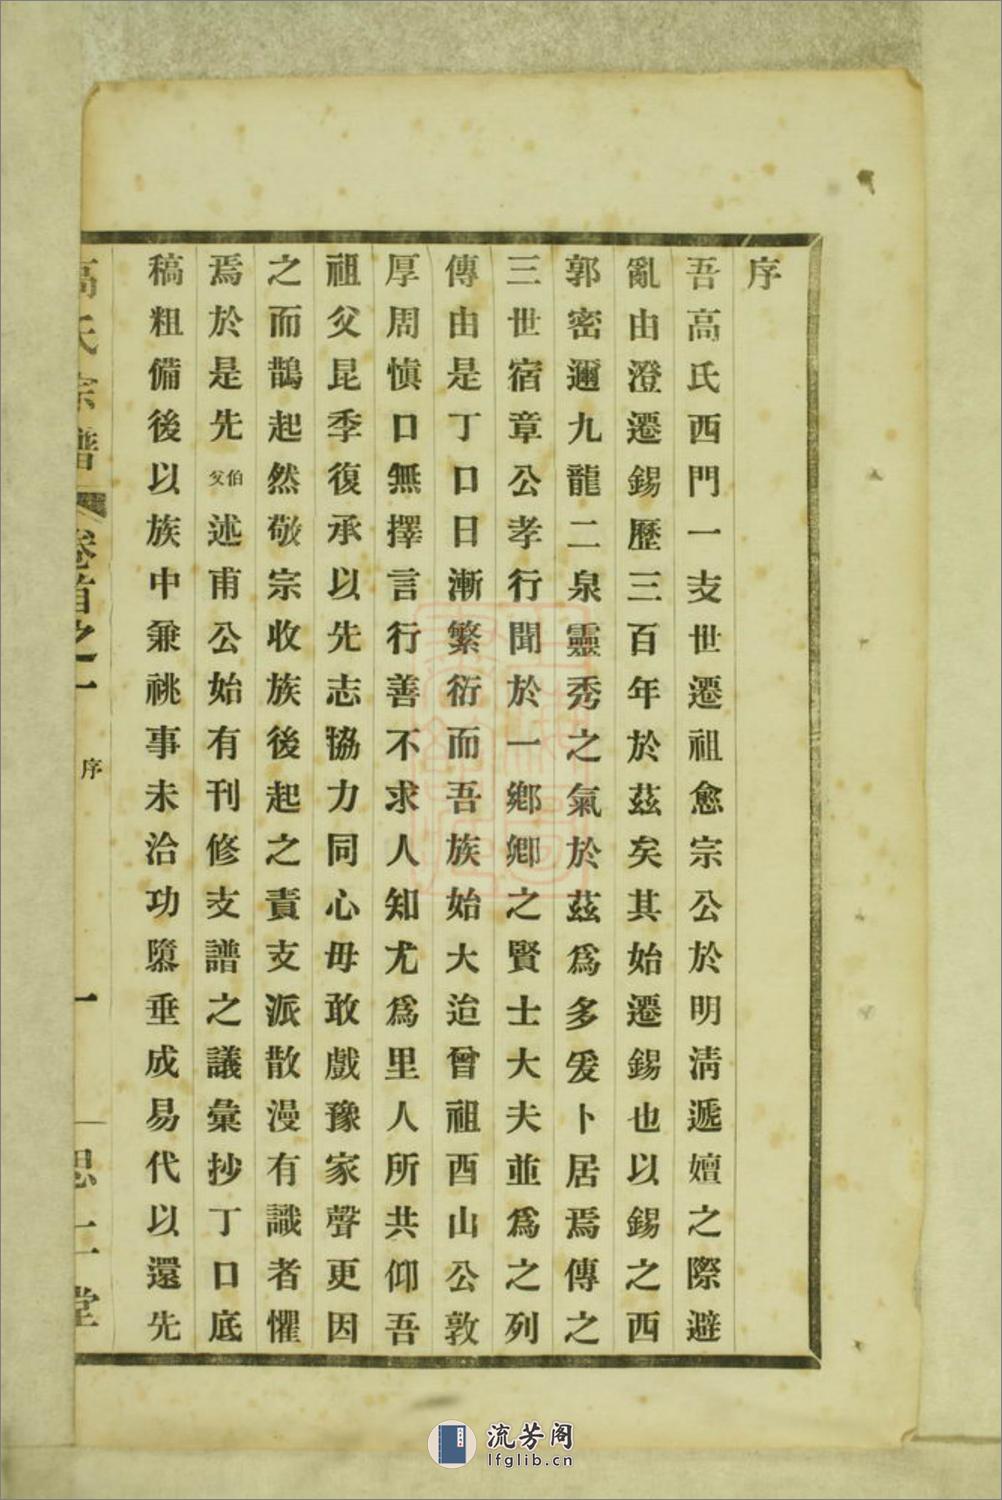 序
吾高氏西門一支世遷祖愈宗公於明淸遞嬗之際避
亂由澄遷錫歷三百年於茲矣其始遷錫也以錫之西
郭密邇九龍二泉靈秀之氣於茲爲多爰卜居焉傳之
三世宿章公孝行聞於一鄕鄕之賢士大夫並爲之列
傳由是丁口日漸繁衍而吾族始大迨曾祖酉山公敦
厚周愼口無擇言行善不求人知尤爲里人所共仰吾
祖父昆季復承以先志協力同心毋敢戲豫家聲更因
之而鵲起然敬宗收族後起之責支派散漫有識者懼
焉於是先伯父述甫公始有刊修支譜之議彙抄丁口底
稿粗備後以族中兼祧事未洽功隳垂成易代以還先
高氏宗譜 卷首之一 序 一 思一堂
流芳阁
lfglib.cn